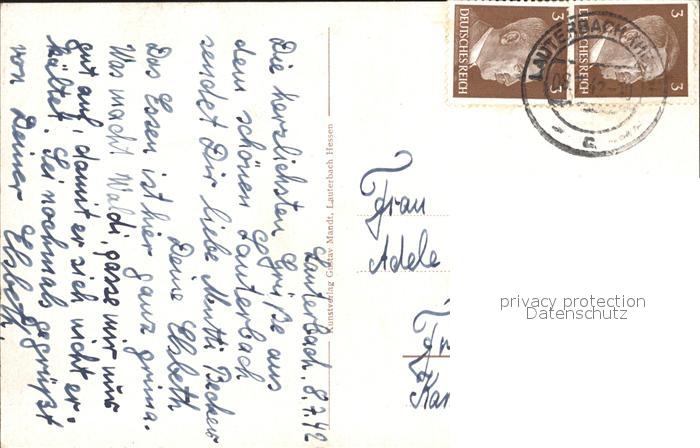 Lauterbach. 8.7.42
Die herzlichsten Grüße aus
dem schönen Lauterbach
sendet Dir liebe Mutti Becker
Deine Elsbeth
Das Essen ist hier ganz prima.
Was macht Waldi, passe mir nur
gut auf, damit er sich nicht er-
kältet. Sei nochmals gegrüßt
von Deiner Elsbeth.
Kunstverlag Gustav Mandt, Lauterbach Hessen
DEUTSCHES REICH 3 3
DEUTSCHES REICH 3 3
LAUTERBACH
Frau
Adele
privacy protection
Datenschutz